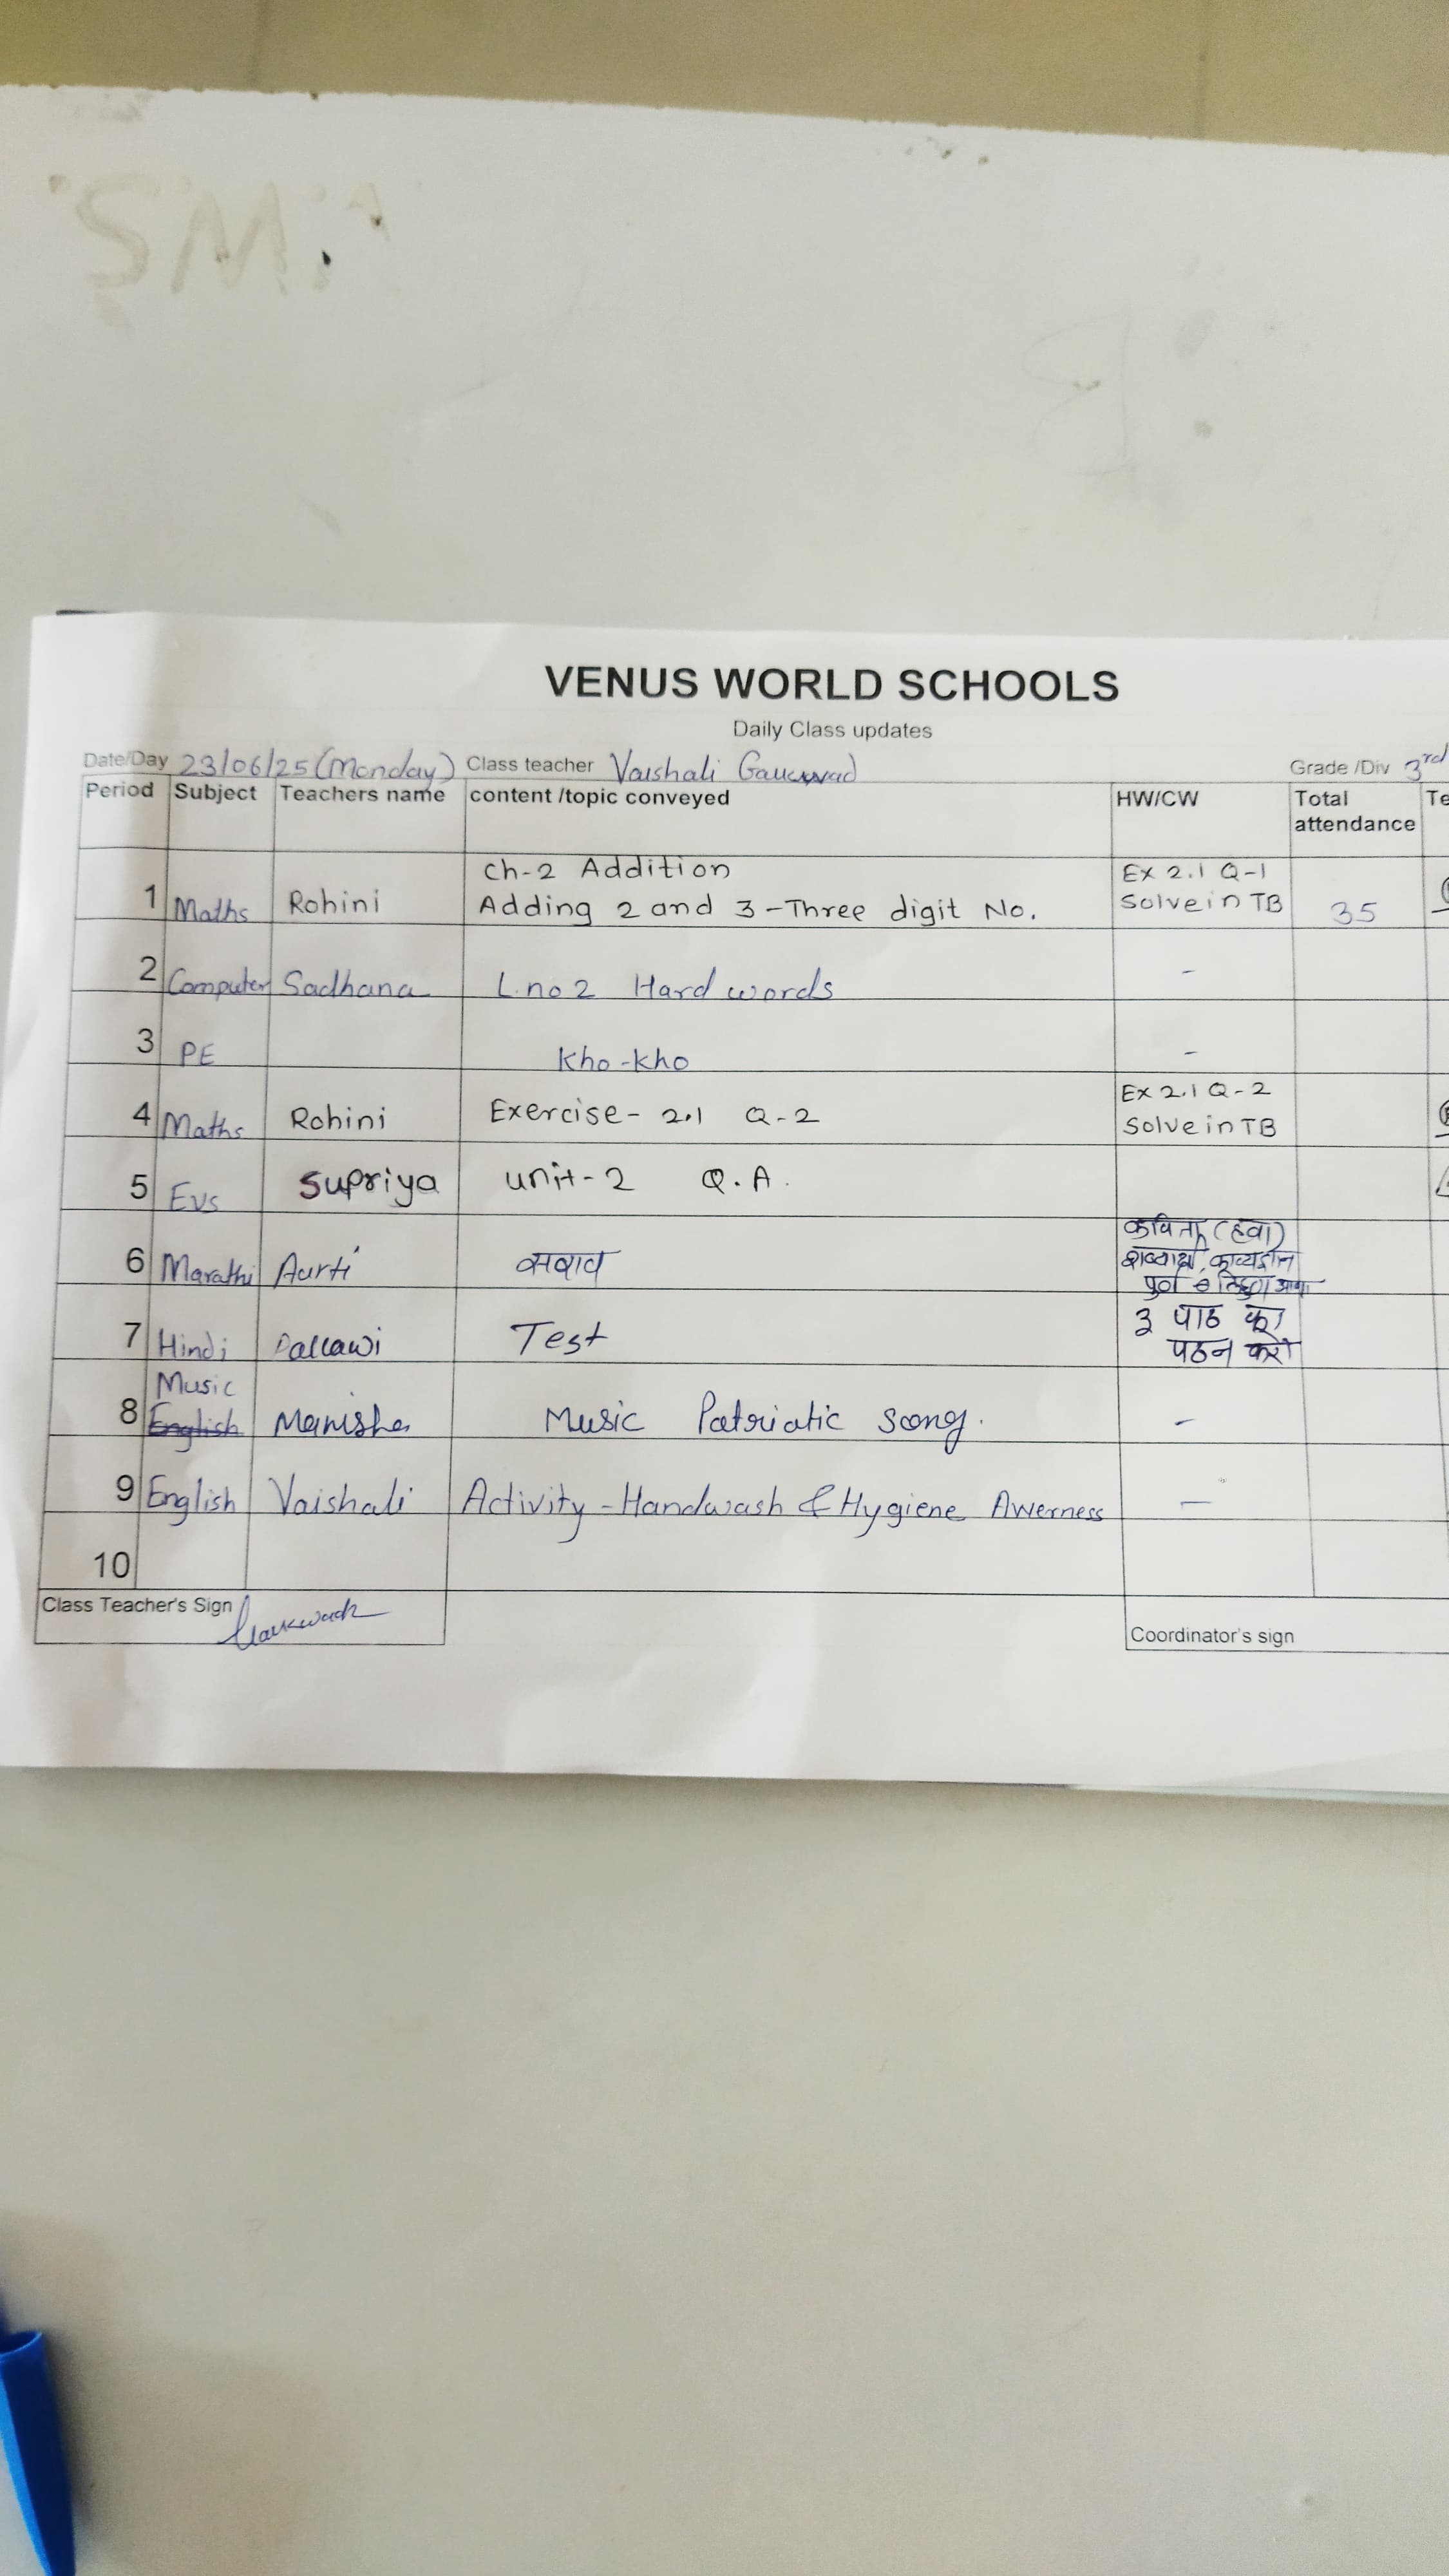 VENUS WORLD SCHOOLS
Daily Class updates
Date/Day 23/06/25 (Monday) Class teacher Vaishali Gaikwad Grade /Div 3rd
Period Subject Teachers name content /topic conveyed HW/CW Total attendance Te
1 Maths Rohini Ch-2 Addition Ex 2.1 Q-1
Adding 2 and 3-Three digit No. Solve in TB 35
2 Computer Sadhana L.no 2 Hard words -
3 PE Kho-kho -
4 Maths Rohini Exercise- 2.1 Q-2 Ex 2.1 Q-2
Solve in TB
5 Evs Supriya unit-2 Q.A.
6 Marathi Aarti कविता (हवा)
7 Hindi Pallawi Test 3 पाठ का
पठन करो
Music
8 English Manisha Music Patriatic song. -
9 English Vaishali Activity - Handwash & Hygiene Awerness -
10
Class Teacher's Sign
Coordinator's sign